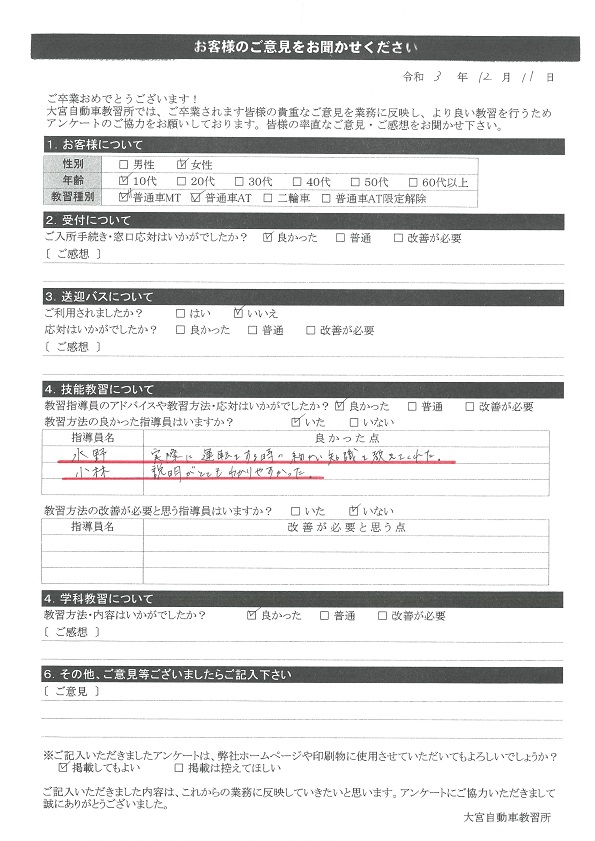 お客様のご意見をお聞かせください
令和 3 年 12 月 11 日
ご卒業おめでとうございます！
大宮自動車教習所では、ご卒業されます皆様の貴重なご意見を業務に反映し、より良い教習を行うため
アンケートのご協力をお願いしております。皆様の率直なご意見・ご感想をお聞かせ下さい。
1. お客様について
性別 □ 男性 ☑ 女性
年齢 ☑ 10代 □ 20代 □ 30代 □ 40代 □ 50代 □ 60代以上
教習種別 ☑ 普通車MT ☑ 普通車AT □ 二輪車 □ 普通車AT限定解除
2. 受付について
ご入所手続き・窓口応対はいかがでしたか？ ☑ 良かった □ 普通 □ 改善が必要
[ ご感想 ]
3. 送迎バスについて
ご利用されましたか？ □ はい ☑ いいえ
応対はいかがでしたか？ □ 良かった □ 普通 □ 改善が必要
[ ご感想 ]
4. 技能教習について
教習指導員のアドバイスや教習方法・応対はいかがでしたか？ ☑ 良かった □ 普通 □ 改善が必要
教習方法の良かった指導員はいますか？ ☑ いた □ いない
指導員名 良かった点
水野 実際に運転する時の細かい知識を教えてくれた。
小林 説明がとても分かりやすかった。
教習方法の改善が必要と思う指導員はいますか？ □ いた ☑ いない
指導員名 改善が必要と思う点
4. 学科教習について
教習方法・内容はいかがでしたか？ ☑ 良かった □ 普通 □ 改善が必要
[ ご感想 ]
6. その他、ご意見等ございましたらご記入下さい
[ ご意見 ]
※ご記入いただきましたアンケートは、弊社ホームページや印刷物に使用させていただいてもよろしいでしょうか？
☑ 掲載してもよい □ 掲載は控えてほしい
ご記入いただきました内容は、これからの業務に反映していきたいと思います。アンケートにご協力いただきまして
誠にありがとうございました。
大宮自動車教習所